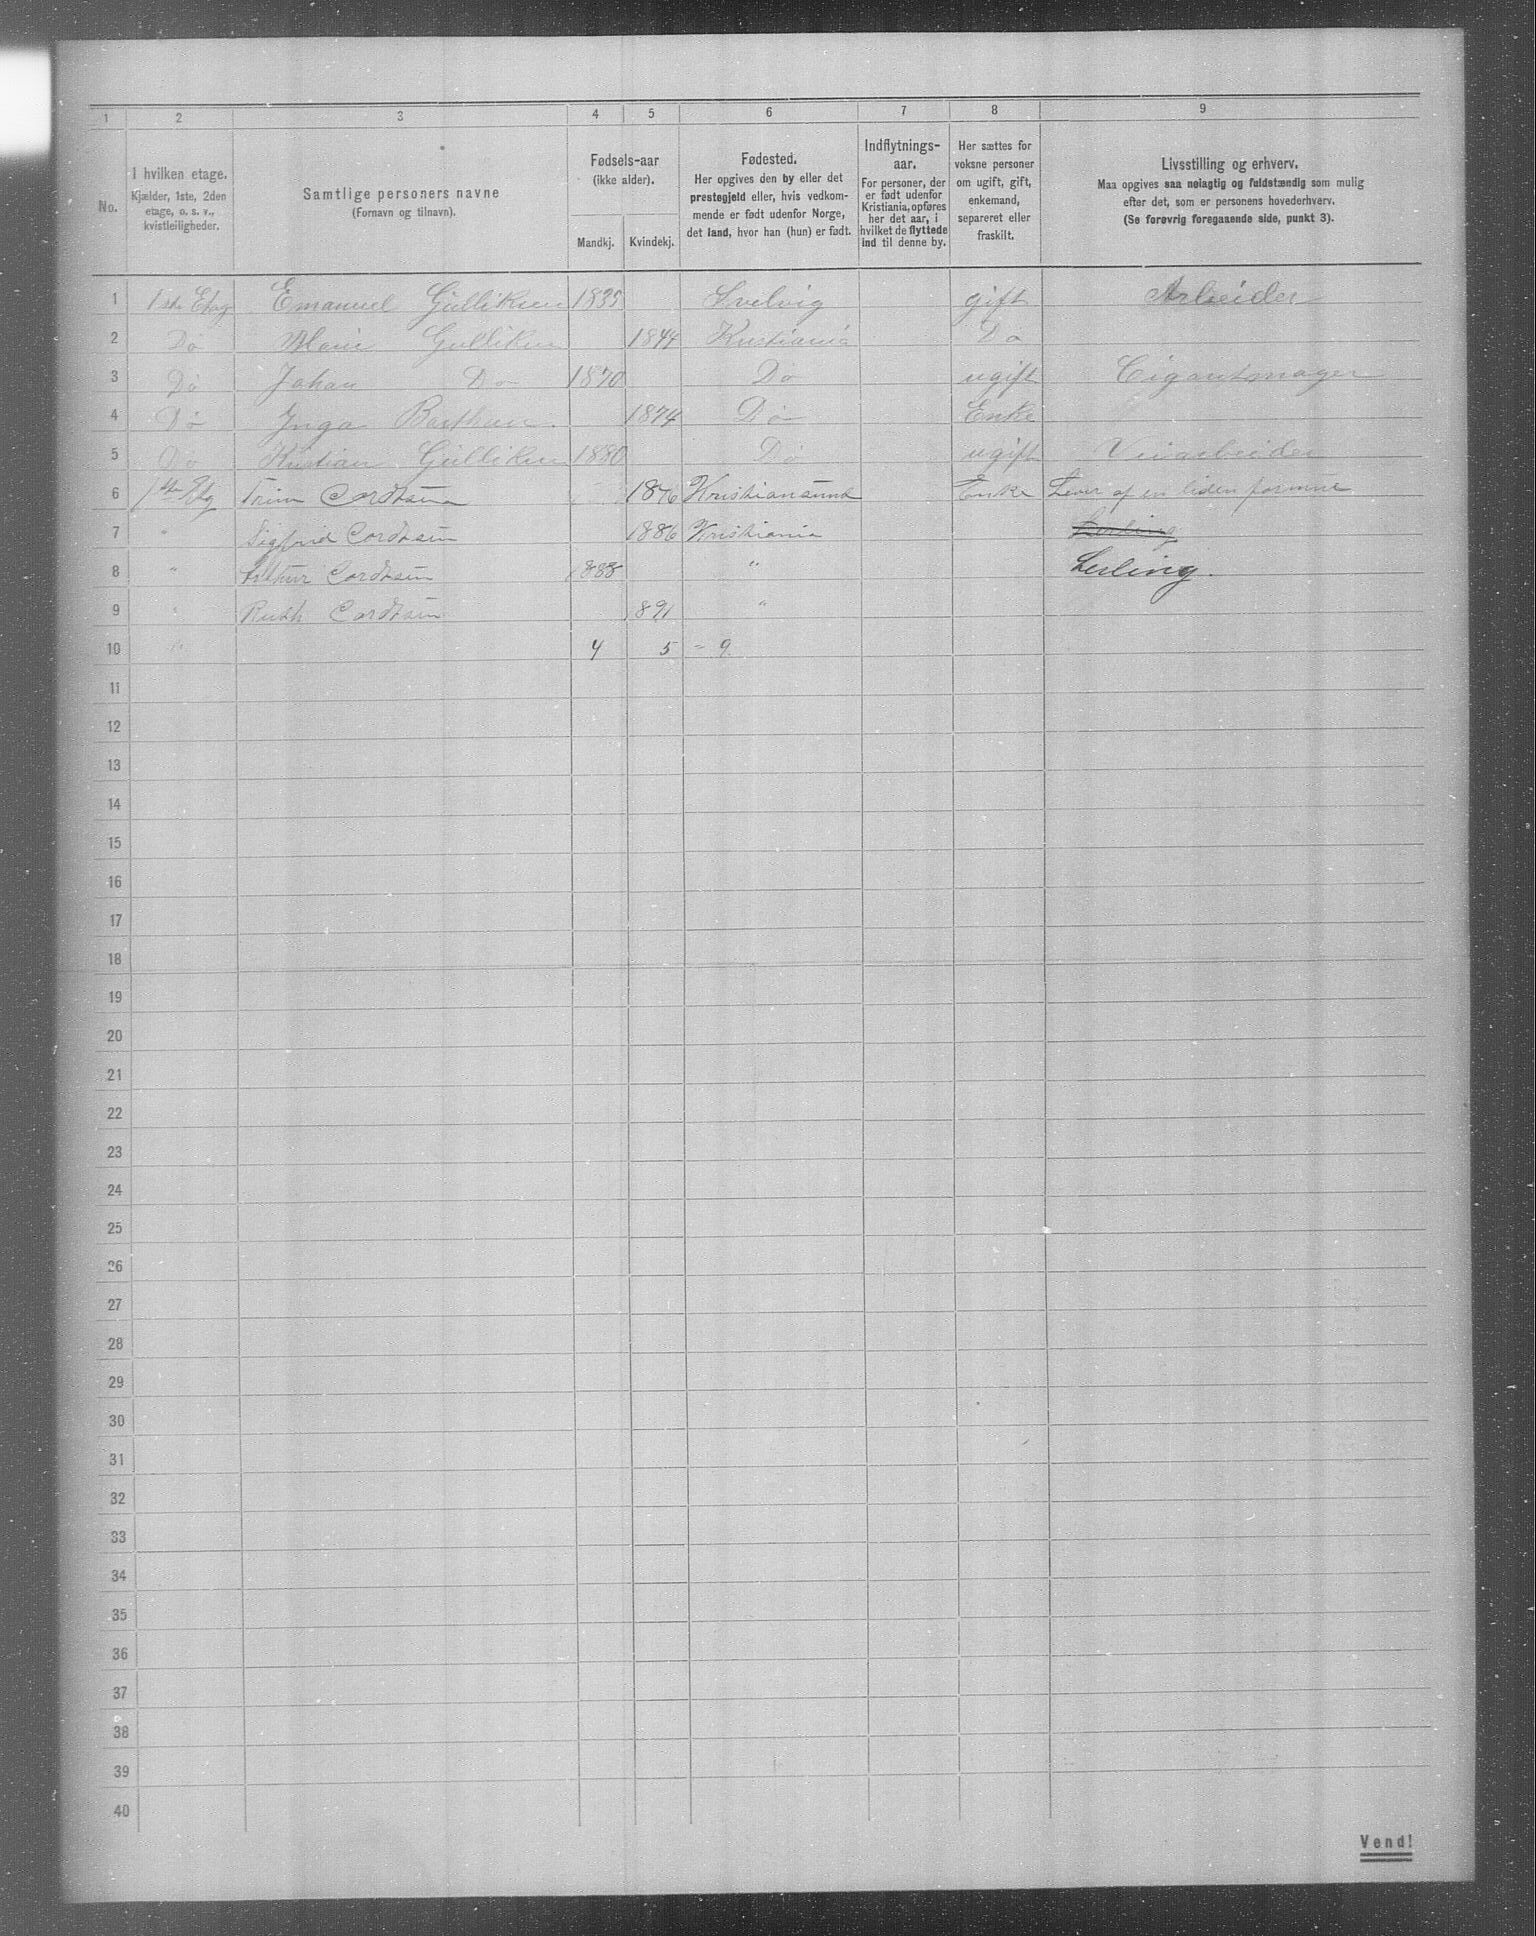 1 2 3 4 5 6 7 8 9
No.
I hvilken etage.
Kjælder, 1ste, 2den
etage, o. s. v.,
kvistleiligheder.
Samtlige personers navne
(Fornavn og tilnavn).
Fødsels-aar
(ikke alder).
Mandkj. Kvindekj.
Fødested.
Her opgives den by eller det
prestegjeld eller, hvis vedkom-
mende er født udenfor Norge,
det land, hvor han (hun) er født.
Indflytnings-
aar.
For personer, der
er født udenfor
Kristiania, opføres
her det aar, i
hvilket de flyttede
ind til denne by.
Her sættes for
voksne personer
om ugift, gift,
enkemand,
separeret eller
fraskilt.
Livsstilling og erhverv.
Maa opgives saa nøiagtig og fuldstændig som mulig
efter det, som er personens hovederhverv.
(Se forøvrig foregaaende side, punkt 3).
1 1ste Etag Emanuel Gulliksen 1835 Svelvig gift Arbeider
2 Do Marie Gulliksen 1844 Kristiania Do
3 Do Johan Do 1870 Do ugift Cigarmager
4 Do Inga 1874 Do Enke
5 Do Kristian Gulliksen 1880 Do ugift
6 1ste Etg Cordtsen Kristiansund Enke Lever af en liden formue
7 " Sigfrid Cordtsen 1886 Kristiania
8 " Arthur Cordtsen 1888 " Lerling.
9 " Ruth Cordtsen 1891 "
10 " 4 5 = 9.
11
12
13
14
15
16
17
18
19
20
21
22
23
24
25
26
27
28
29
30
31
32
33
34
35
36
37
38
39
40
Vend!